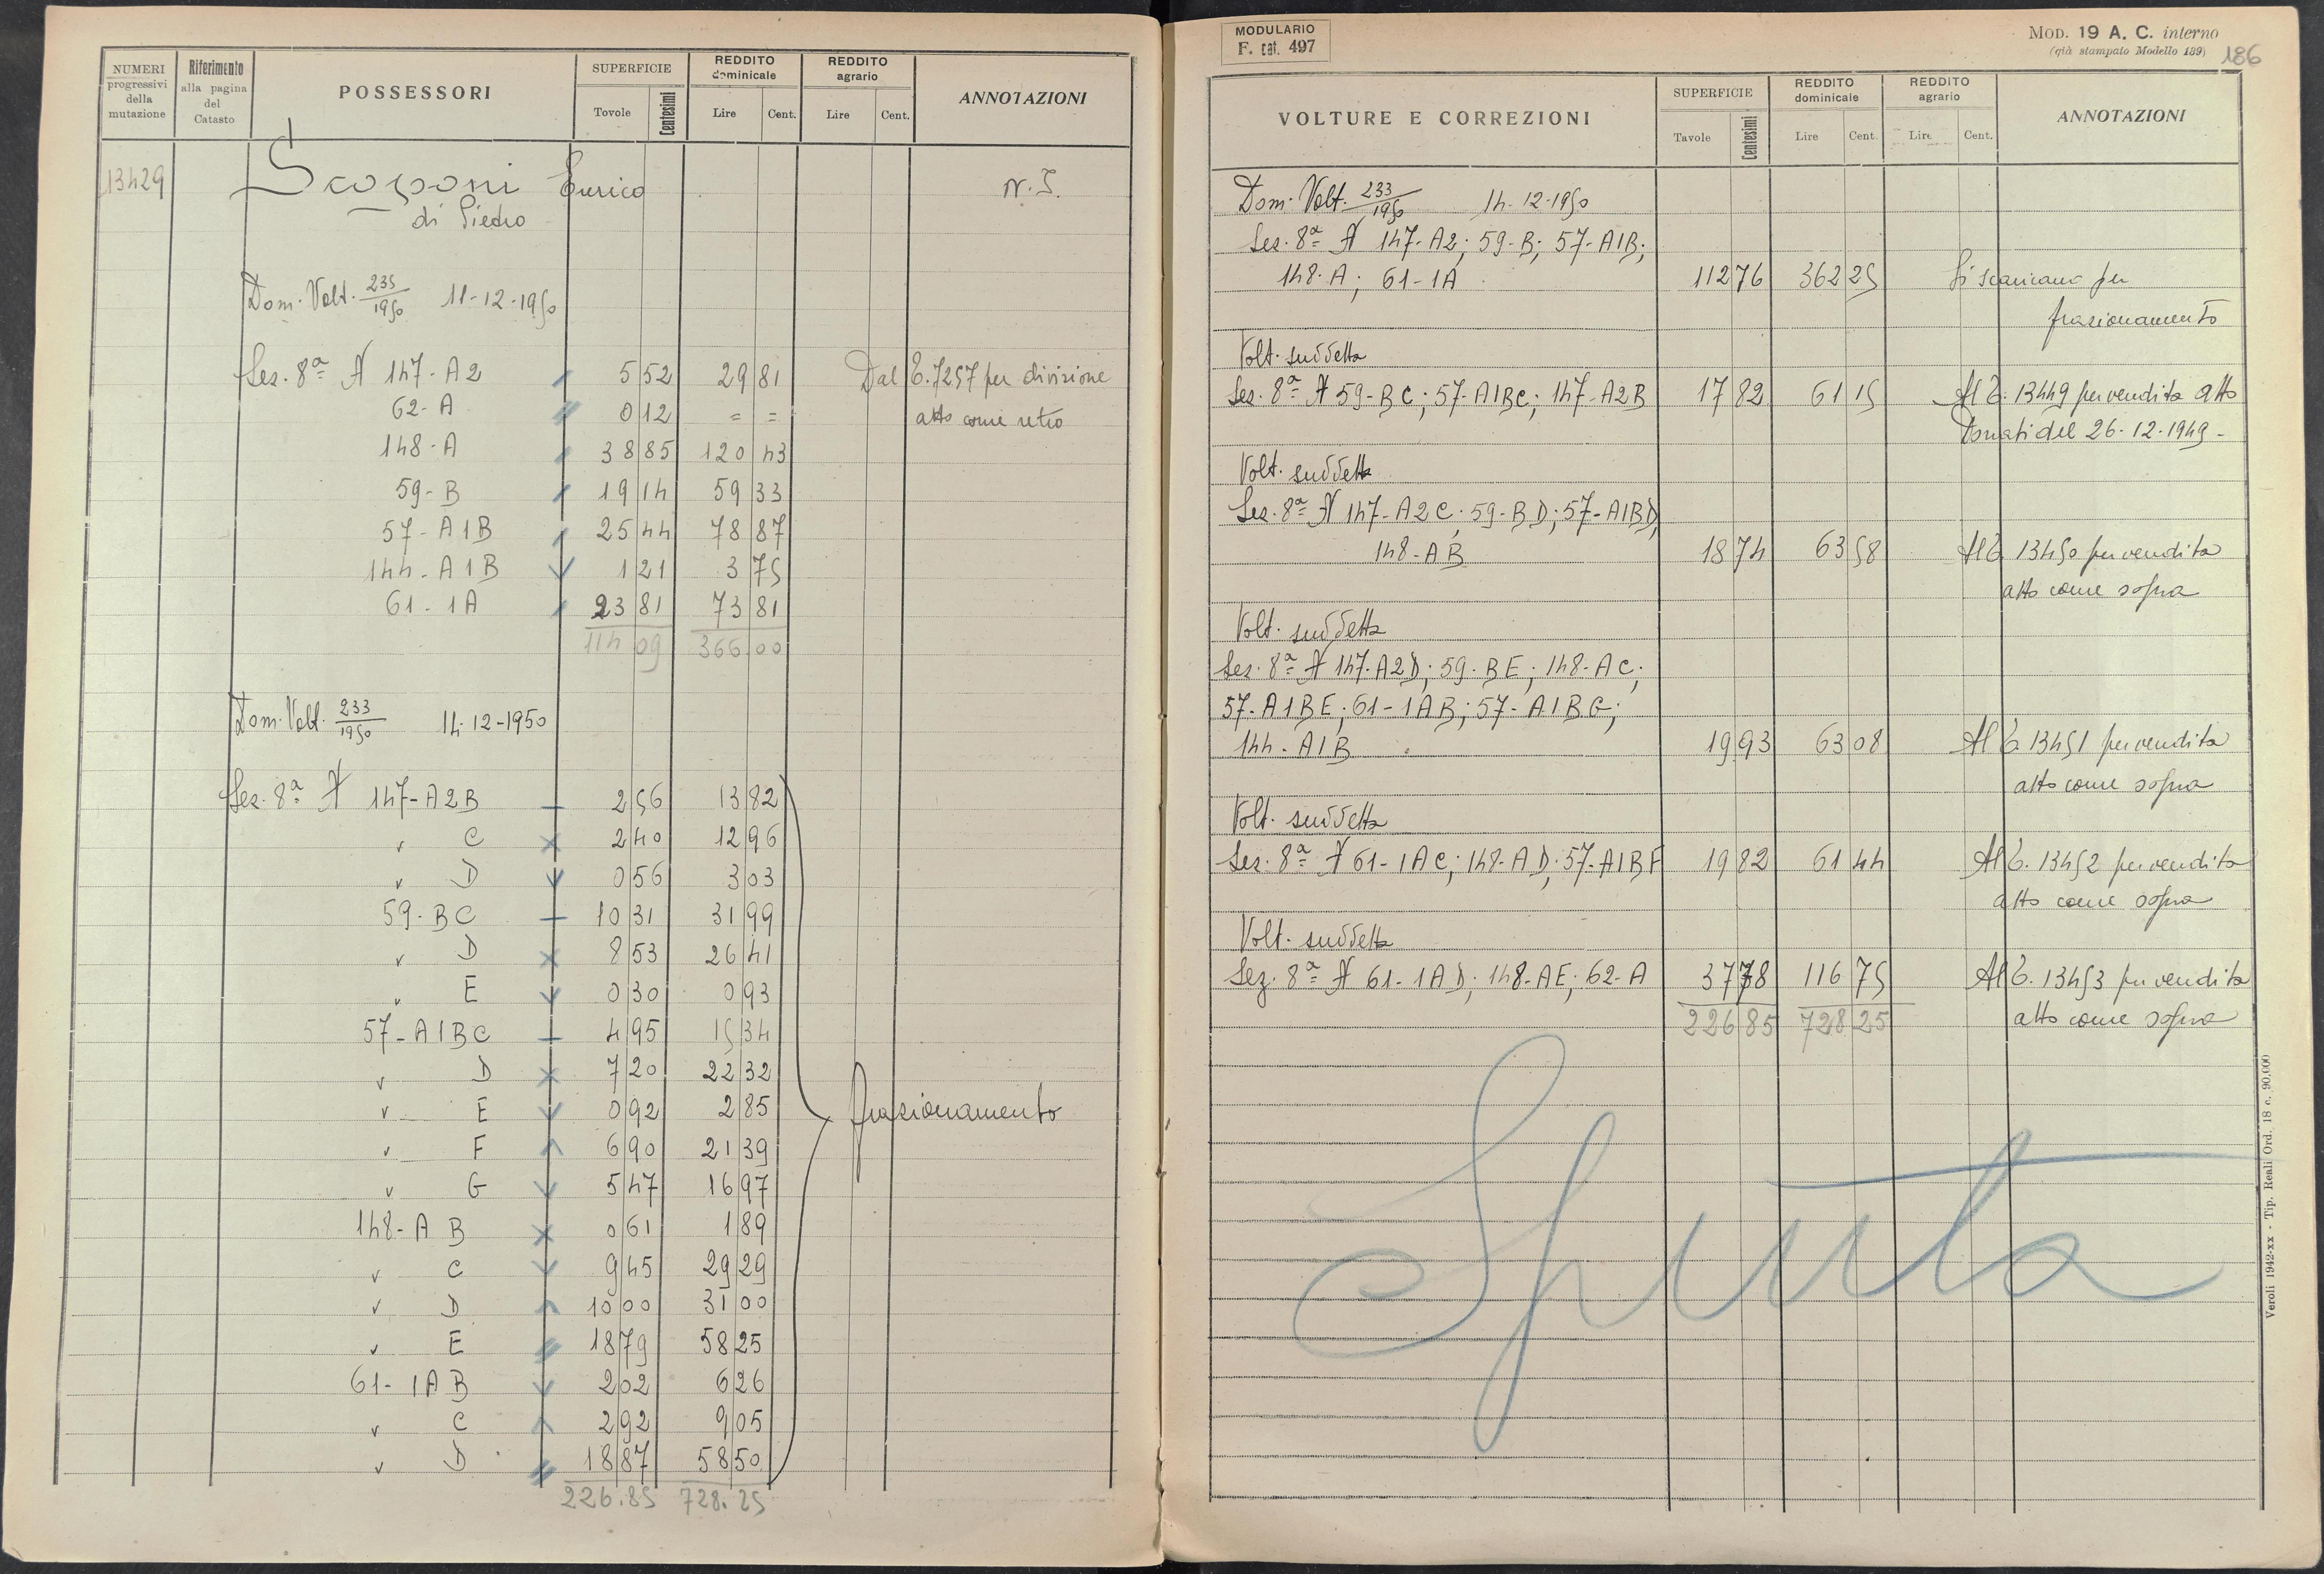 NUMERI progressivi della mutazione
Riferimento alla pagina del Catasto
POSSESSORI
SUPERFICIE
Tovole Centesimi
REDDITO dominicale
Lire Cent.
REDDITO agrario
Lire Cent.
ANNOTAZIONI
13429 Scosponi Enrico N. I.
di Piedro
Dom. Volt. 235/1950 11-12-1950
Sez. 8ª A 147-A2 5 52 29 81 Dal 6.7257 per divisione
62-A 0 12 = = atto come retro
148-A 38 85 120 43
59-B 19 14 59 33
57-A1B 25 44 78 87
144-A1B 1 21 3 75
61-1A 23 81 73 81
114 09 366 00
Dom. Volt. 233/1950 14-12-1950
Sez. 8ª A 147-A2B 2 56 13 82
" C 2 40 12 96
" D 0 56 3 03
59-BC 10 31 31 99
" D 8 53 26 41
" E 0 30 0 93
57-A1BC 4 95 15 34
" D 7 20 22 32
" E 0 92 2 85 frazionamento
" F 6 90 21 39
" G 5 47 16 97
148-AB 0 61 1 89
" C 9 45 29 29
" D 10 00 31 00
" E 18 79 58 25
61-1AB 2 02 6 26
" C 2 92 9 05
" D 18 87 58 50
226.85 728.25
MODULARIO
F. cat. 497
MOD. 19 A. C. interno
(già stampato Modello 189) 186
VOLTURE E CORREZIONI
SUPERFICIE
Tavole Centesimi
REDDITO dominicale
Lire Cent.
REDDITO agrario
Lire Cent.
ANNOTAZIONI
Dom. Volt. 233/1950 14-12-1950
Sez. 8ª A 147-A2; 59-B; 57-A1B;
148-A; 61-1A 112 76 362 25 Si scaricano per
frazionamento
Volt. suddetta
Sez. 8ª A 59-BC; 57-A1BC; 147-A2B 17 82 61 15 Al 6. 13449 per vendita atto
Donati del 26-12-1949-
Volt. suddetta
Sez. 8ª A 147-A2C; 59-BD; 57-A1BD;
148-AB 18 74 63 58 Al 6. 13450 per vendita
atto come sopra
Volt. suddetta
Sez. 8ª A 147-A2D; 59-BE; 148-AC;
57-A1BE; 61-1AB; 57-A1BG;
144-A1B 19 93 63 08 Al 6. 13451 per vendita
atto come sopra
Volt. suddetta
Sez. 8ª A 61-1AC; 148-AD; 57-A1BF 19 82 61 44 Al 6. 13452 per vendita
atto come sopra
Volt. suddetta
Sez. 8ª A 61-1AD; 148-AE; 62-A 37 78 116 75 Al 6. 13453 per vendita
226 85 728 25 atto come sopra
Spenta
Veroli 1942-xx - Tip. Reali Ord. 18 c. 90.000